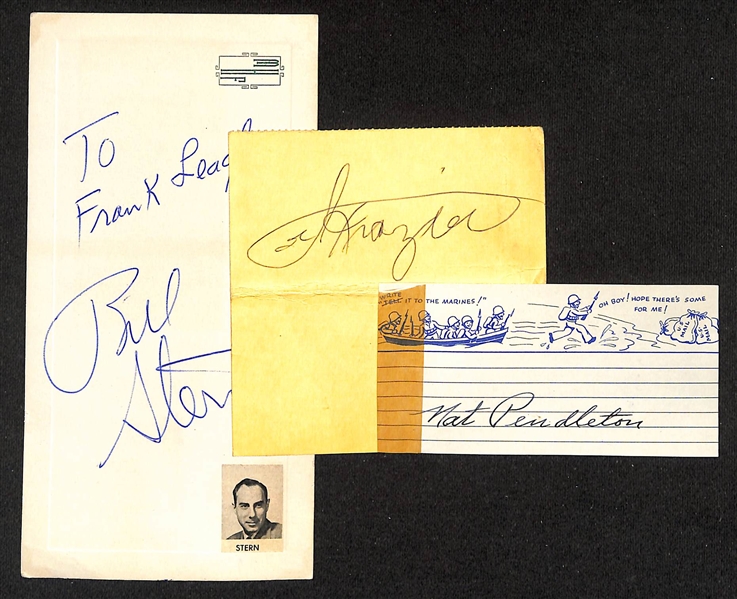 To
Frank Leag
Bill
Stern
STERN
Frazier
WRITE
"TELL IT TO THE MARINES!"
OH BOY! HOPE THERE'S SOME
FOR ME!
U.S. MAIL
Nat Pendleton